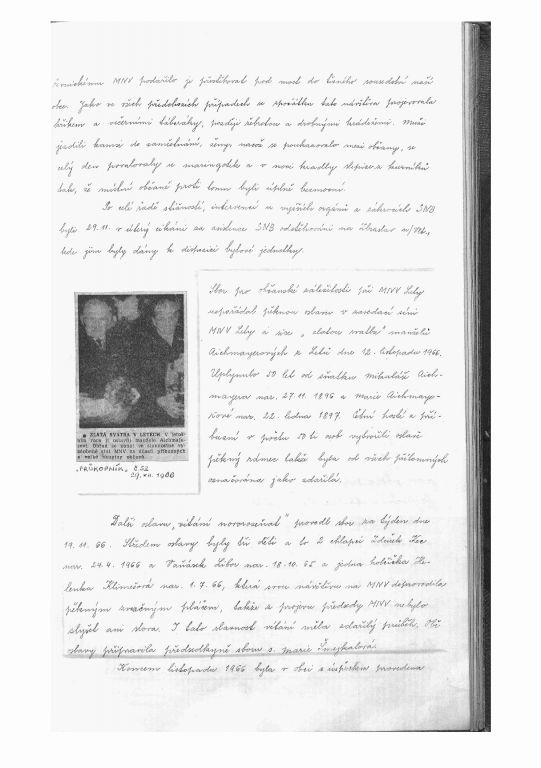 MNV podařilo je přestěhovat pod most do těsného sousedství naší
obce. Jako ve všech předchozích případech se zpočátku tato návštěva projevovala
křikem a večerními táboráky, později žebrotou a drobnými krádežemi. Muži
jezdili kamsi do zaměstnání, ženy, načež si poukazovalo mezi občany, se
celý den povalovaly v maringotck a v noci kradly slepice z kurníků
tak, že místní občané proti tomu byli úplně bezmocní.
Po celé řadě stížností, intervencí u vyšších orgánů a zákroků SNB
byli 29.11. v úterý cikáni za asistence SNB odstěhováni na Zbraslav n/Vlt.,
kde jim byly dány k disposici bytové jednotky.
Sbor pro občanské záležitosti při MNV Lety
uspořádal pěknou oslavu v zasedací síni
MNV Lety a sice "zlatou svatbu" manželů
Aichmayerových z Letů dne 12. listopadu 1966.
Uplynulo 50 let od sňatku Mikuláše Aich-
mayera nar. 27.11 1896 a Marie Aichmayero-
vé nar. 22. ledna 1897. Četní hosté a pří-
buzní v počtu 50ti osob vytvořili oslavě
pěkný rámec takže byla od všech přítomných
označována jako zdařilá.
● ZLATÁ SVATBA V LETECH. V letoš-
ním roce ji oslavili manželé Aichmaje-
rovi. Obřad se konal ve slavnostně vy-
zdobené síni MNV za účasti příbuzných
a velké skupiny občanů.
"PRŮKOPNÍK" č.52
29.XII.1966
Další oslavu "vítání novorozeňat" provedl sbor za týden dne
19.11.66. Středem oslavy byly tři děti a to 2 chlapci Zdeněk
nar. 24.4.1966 a Vaňásek Libor nar. 18.10.65 a jedna holčička He-
lenka Klimešová nar. 1.7.66, která svou návštěvu na MNV doprovodila
pěkným zvučným pláčem, takže z projevu předsedy MNV nebylo
slyšet ani slova. I tato slavnost vítání měla zdařilý průběh. Obě
oslavy připravila předsedkyně sboru s. Marie Šmejkalová.
Koncem listopadu 1966 byla v obci s úspěchem provedena